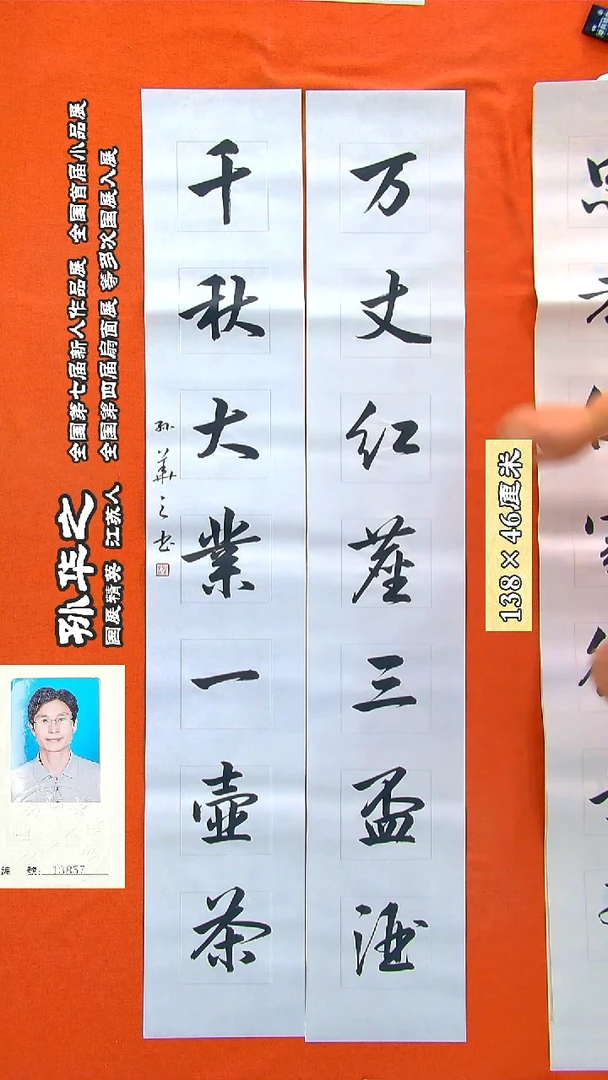 万丈红塵三盃酒
千秋大業一壺茶
孙華之书
孙华之
國展精英 江苏人
全國第七届新人作品展 全國首届小品展
全國第四届扇面展 等多次國展入展
138×46厘米
號: 13857